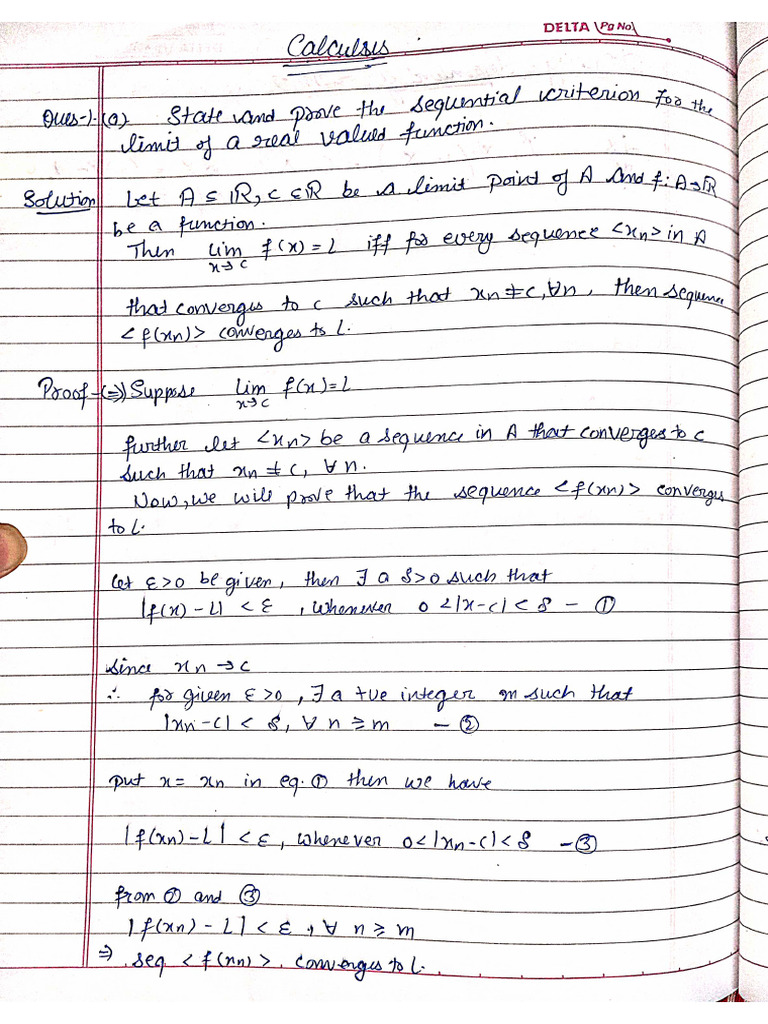 DELTA Pg No
Calculus
Ques-1.(a). State and prove the sequential criterion for the
limit of a real valued function.
Solution Let A ⊆ IR, c ∈ IR be a limit point of A and f: A→IR
be a function.
Then lim f(x) = L iff for every sequence <xn> in A
x→c
that converges to c such that xn ≠ c, ∀n, then sequence
<f(xn)> converges to L.
Proof-(⇒) Suppose lim f(x)=L
x→c
further let <xn> be a sequence in A that converges to c
such that xn ≠ c, ∀ n.
Now, we will prove that the sequence <f(xn)> converges
to L.
let ε>0 be given, then ∃ a δ>0 such that
|f(x) - L| < ε , whenever 0 < |x-c| < δ - ①
since xn → c
∴ for given ε>0, ∃ a +ve integer m such that
|xn - c| < δ, ∀ n ≥ m - ②
put x = xn in eq. ① then we have
|f(xn) - L| < ε, whenever 0 < |xn-c| < δ - ③
from ② and ③
|f(xn) - L| < ε, ∀ n ≥ m
⇒ seq <f(xn)> converges to L.